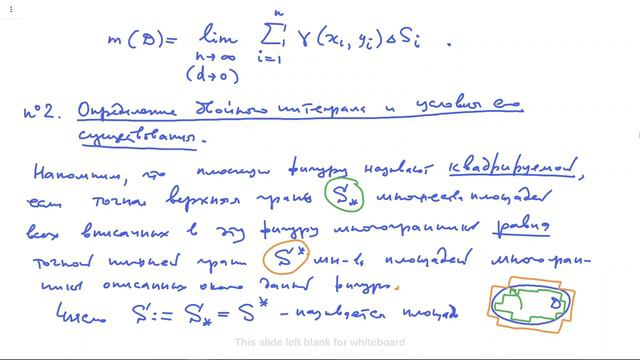 m(D) = lim ∑ γ(xᵢ, yᵢ)ΔSᵢ .
n→∞ i=1 n
(d→0)
n°2. Определение двойного интеграла и условия его
существования.
Напомним, что плоскую фигуру называют квадрируемой,
если точная верхняя грань S* множества площадей
всех вписанных в эту фигуру многогранников равна
точной нижней грани S* мн-ва площадей многогран-
ников описанных около данной фигуры.
Число S := S* = S* – называется площадь
D
This slide left blank for whiteboard